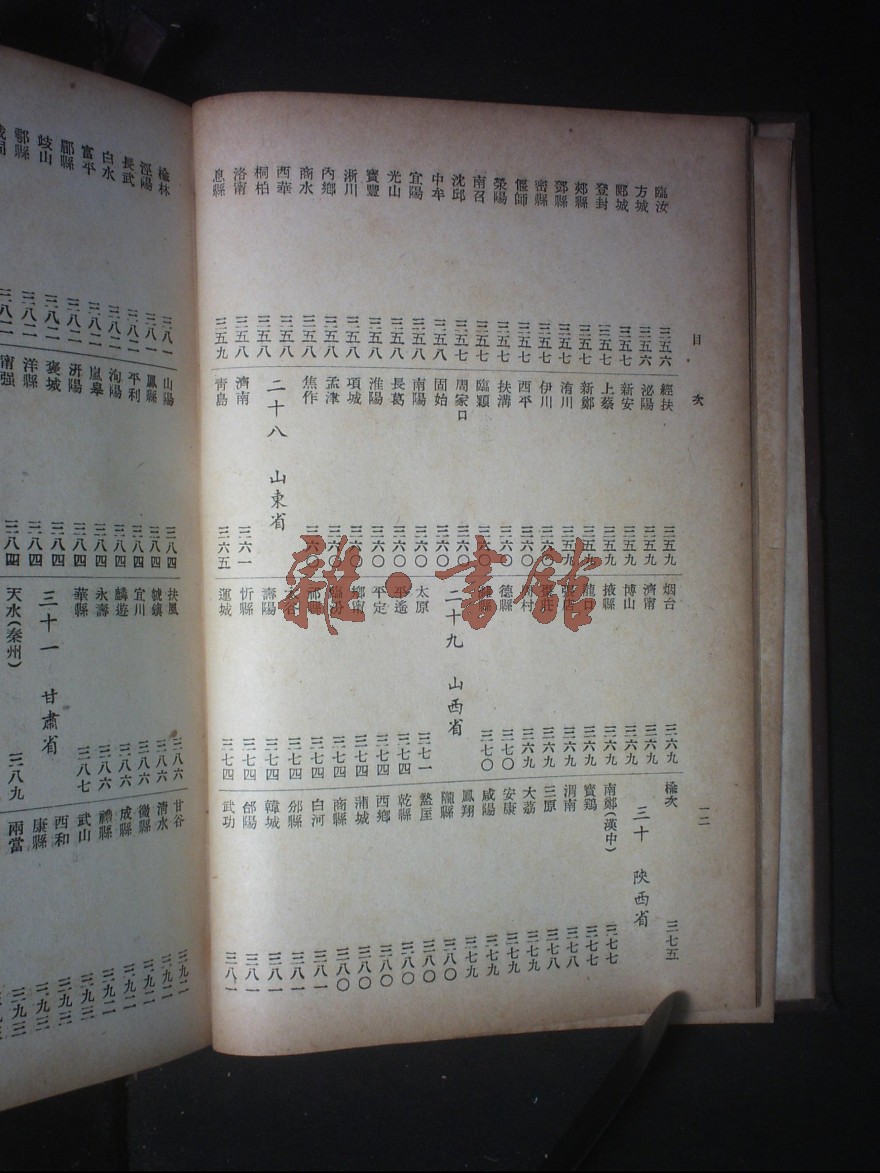 目次
一二
臨汝 三五六
方城 三五六
郾城 三五七
登封 三五七
郟縣 三五七
鄧縣 三五七
密縣 三五七
偃師 三五七
滎陽 三五七
南召 三五七
沈邱 三五七
中牟 三五八
宜陽 三五八
光山 三五八
寶豐 三五八
淅川 三五八
內鄉 三五八
商水 三五八
西華 三五八
桐柏 三五八
洛甯 三五八
息縣 三五九
經扶 三五九
泌陽 三五九
新安 三五九
上蔡 三五九
新鄭 三五九
洧川 三五九
伊川 三六〇
西平 三六〇
扶溝 三六〇
臨潁 三六〇
周家口 三六〇
固始 三六〇
南陽 三六〇
長葛 三六〇
淮陽 三六〇
項城 三六〇
孟津 三六〇
焦作 三六〇
二十八 山東省
濟南 三六一
青島 三六五
烟台 三六九
濟甯 三六九
博山 三六九
掖縣 三六九
龍口 三六九
張店 三六九
棗莊 三六九
周村 三六九
德縣 三七〇
縣 三七〇
二十九 山西省
太原 三七一
平遙 三七四
平定 三七四
鄉甯 三七四
臨汾 三七四
祁縣 三七四
太谷 三七四
壽陽 三七四
忻縣 三七四
運城 三七四
榆次 三七五
三十 陝西省
南鄭(漢中) 三七七
寶鷄 三七七
渭南 三七八
三原 三七九
大荔 三七九
安康 三七九
咸陽 三七九
鳳翔 三七九
隴縣 三八〇
盩厔 三八〇
乾縣 三八〇
西鄉 三八〇
蒲城 三八〇
商縣 三八〇
白河 三八一
邠縣 三八一
韓城 三八一
郃陽 三八一
武功 三八一
雜·書館
榆林 三八一
涇陽 三八一
長武 三八二
白水 三八二
富平 三八二
郿縣 三八二
岐山 三八二
鄠縣 三八二
山陽 三八四
鳳縣 三八四
平利 三八四
洵陽 三八四
嵐皋 三八四
汧陽 三八四
褒城 三八四
洋縣 三八四
甯强 三八四
扶風 三八六
虢鎮 三八六
宜川 三八六
麟遊 三八六
永壽 三八六
華縣 三八七
三十一 甘肅省
天水(秦州) 三八九
甘谷
清水
徽縣
成縣
禮縣
武山
西和
康縣
兩當